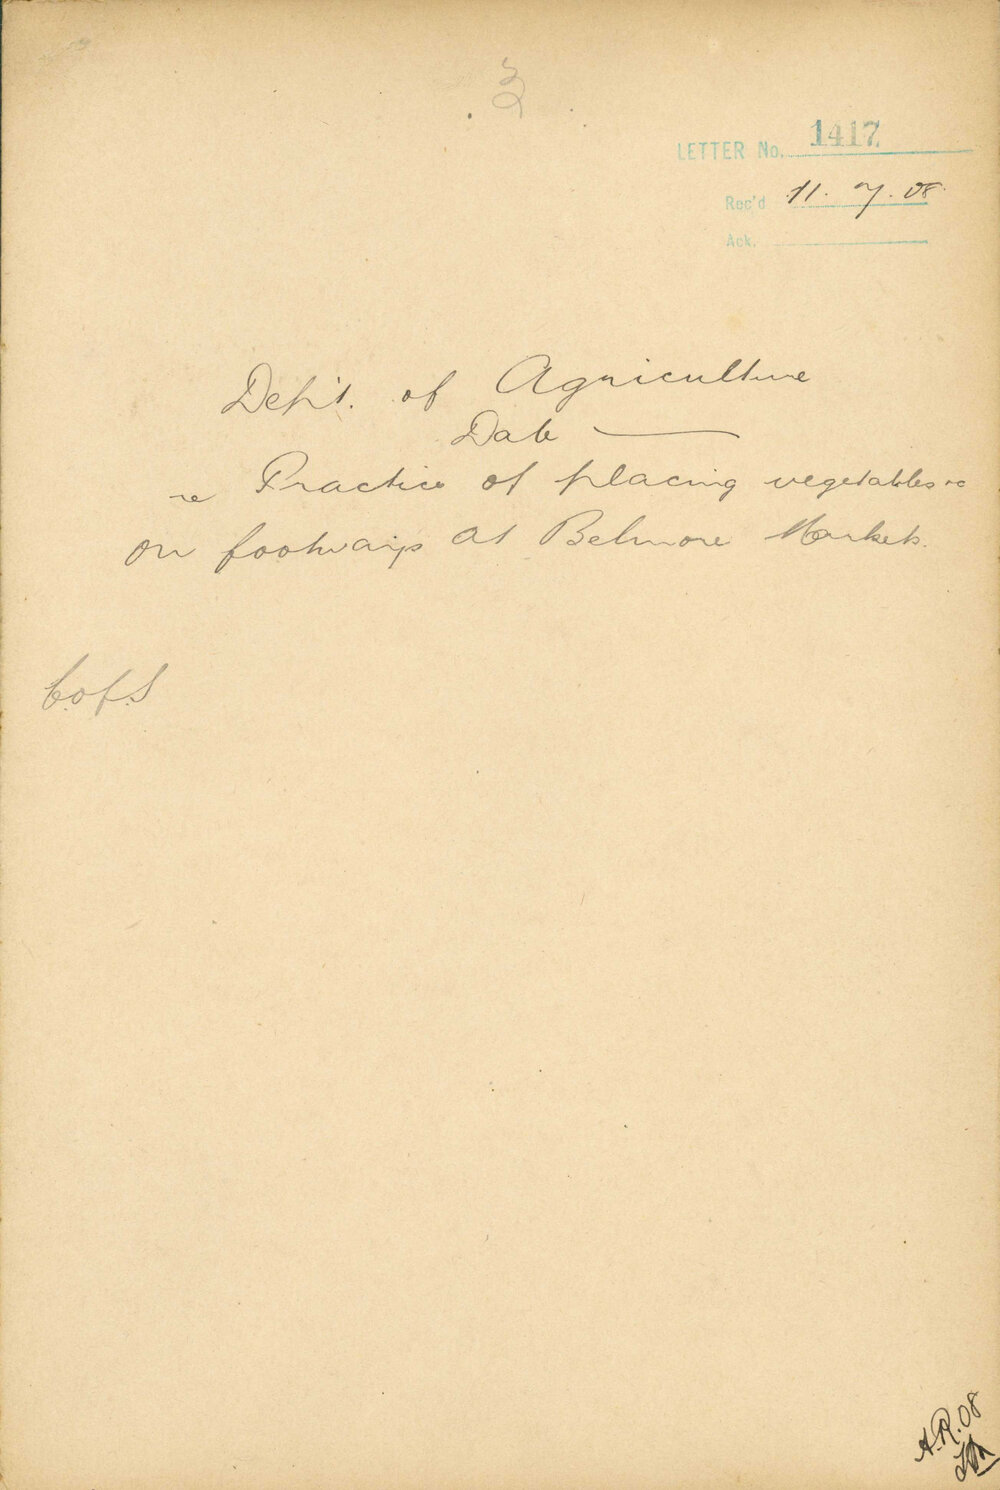 3
LETTER No. 1417
Rec'd 11. 7. 08
Ack.
Dep't. of Agriculture
Date ——
re Practice of placing vegetables &c
on footways at Belmore Markets.
C.of.S
A.R.08